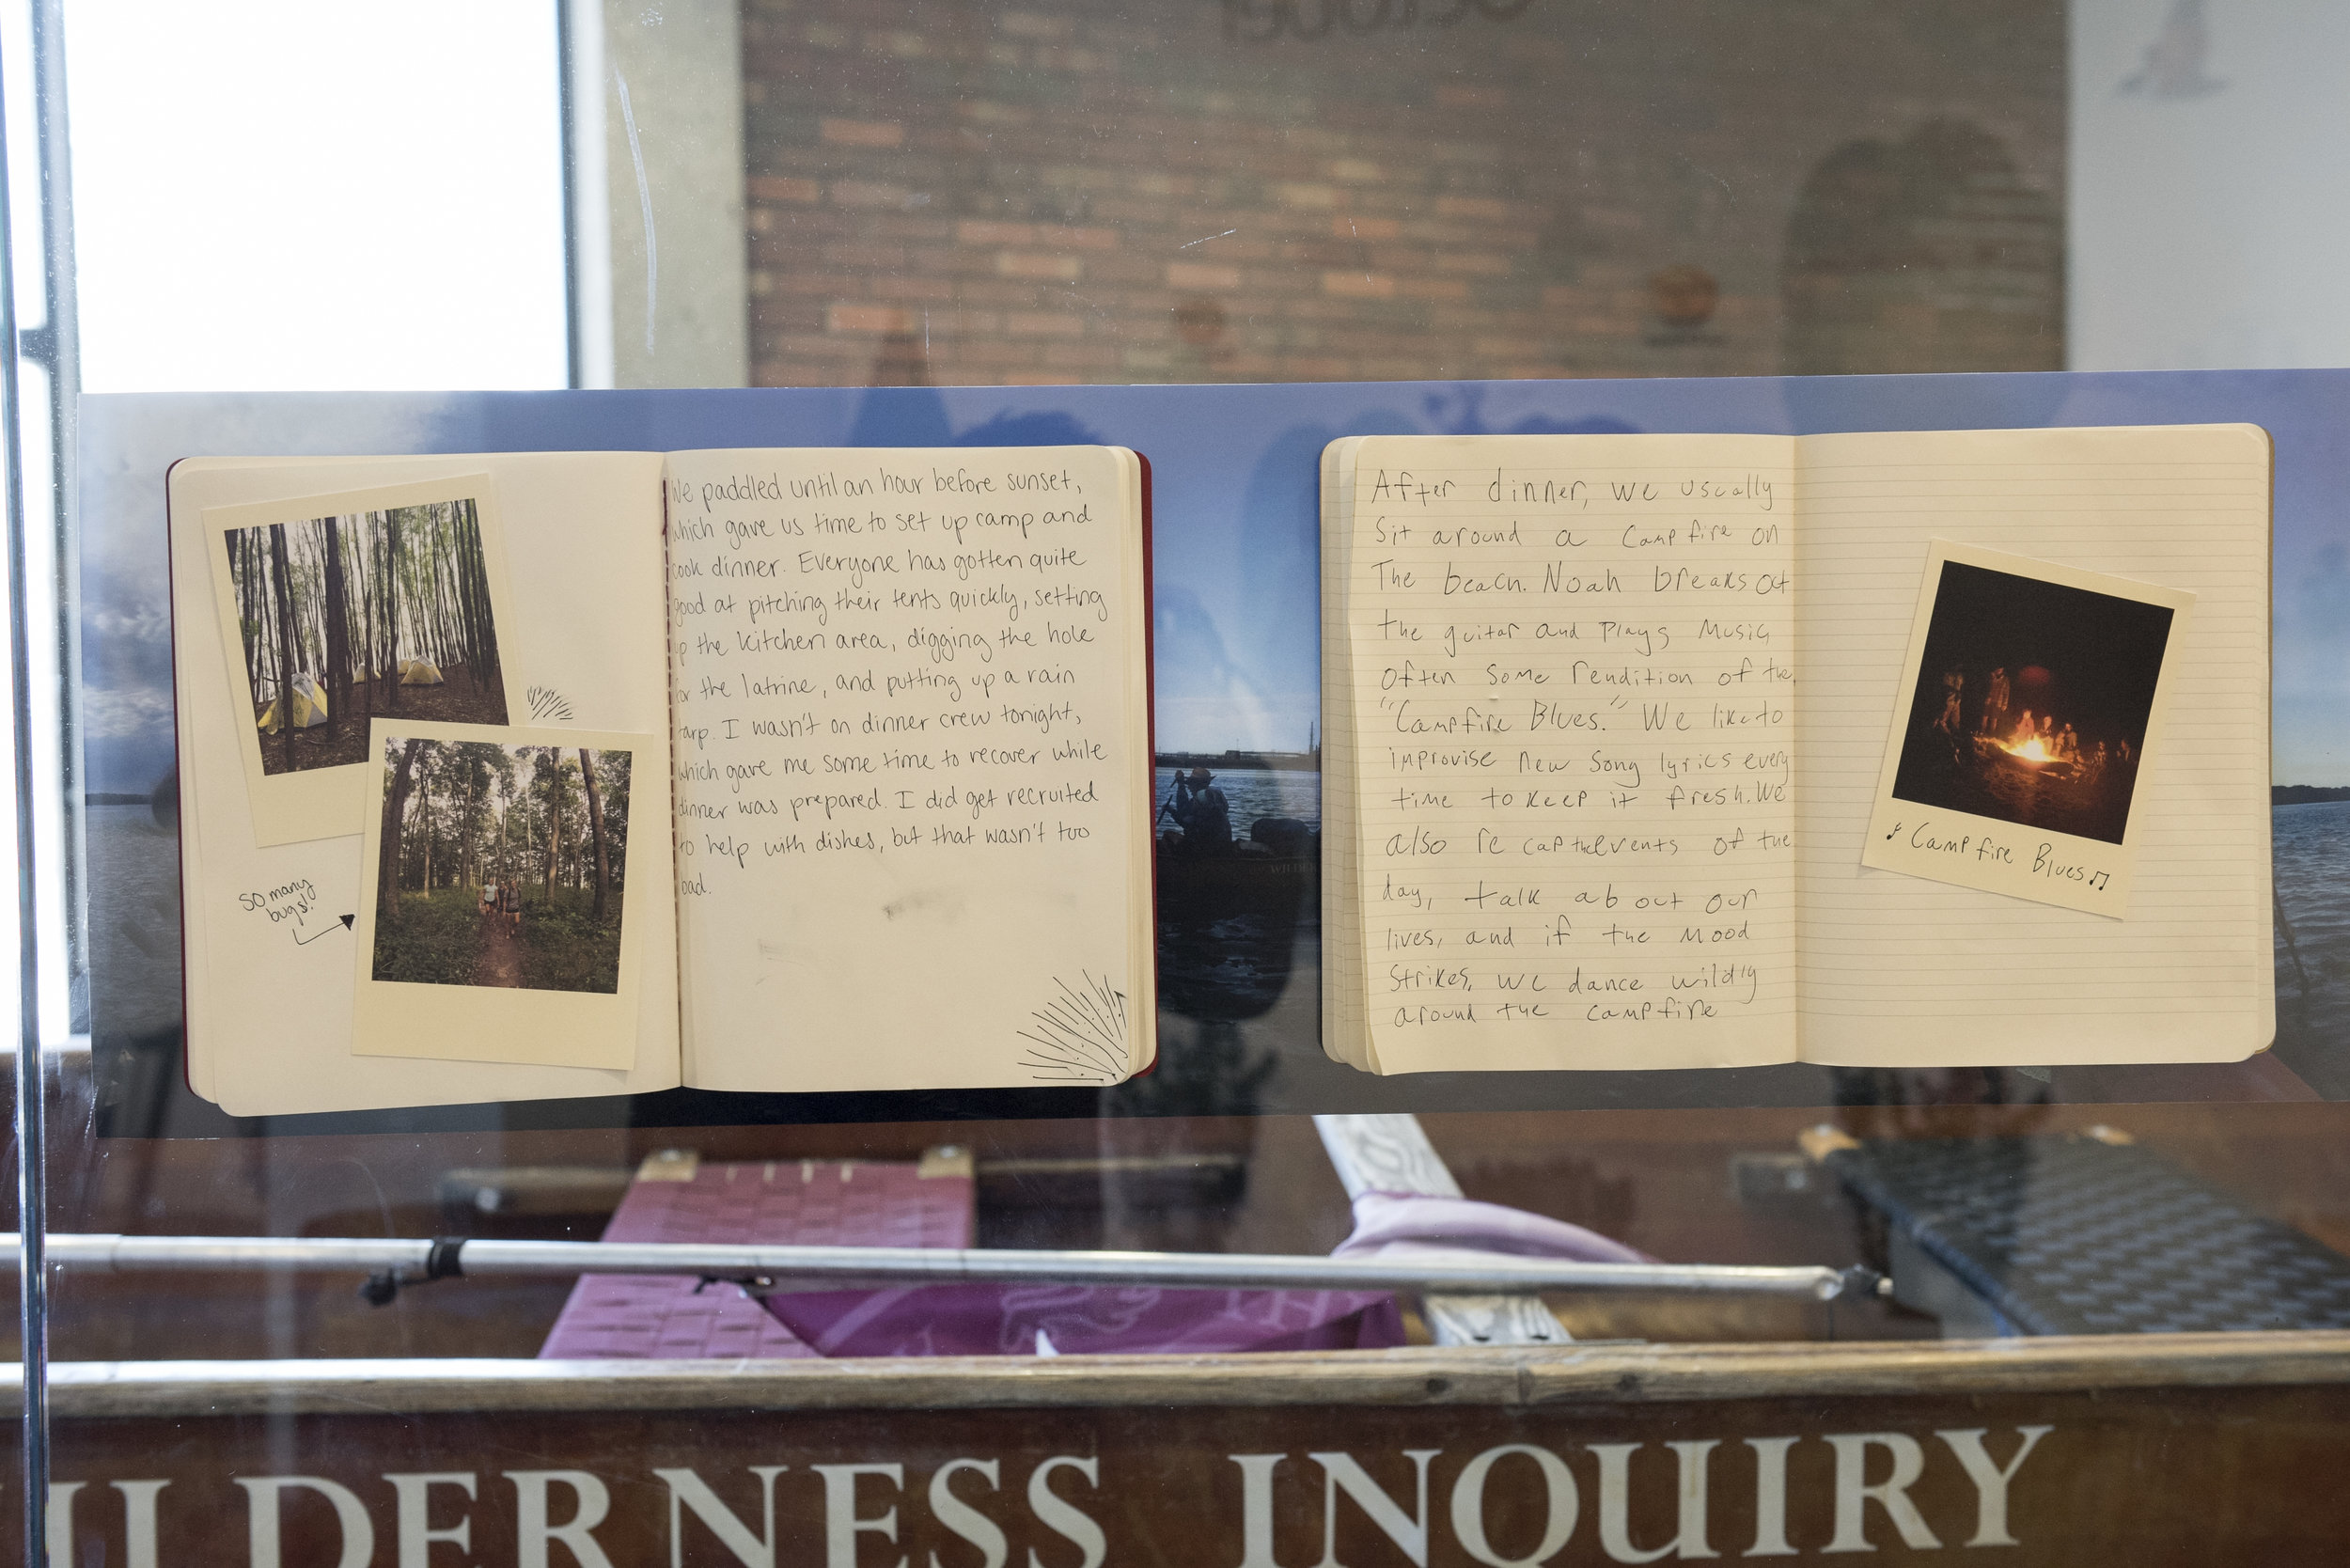 So many
bugs!
We paddled until an hour before sunset,
which gave us time to set up camp and
cook dinner. Everyone has gotten quite
good at pitching their tents quickly, setting
up the kitchen area, digging the hole
for the latrine, and putting up a rain
tarp. I wasn't on dinner crew tonight,
which gave me some time to recover while
dinner was prepared. I did get recruited
to help with dishes, but that wasn't too
bad.
After dinner, we usually
Sit around a Campfire on
The beach. Noah breaks out
the guitar and Plays Music,
often some rendition of the
"Campfire Blues." We like to
improvise new song lyrics every
time to keep it fresh. We
also recap the events of the
day, talk about our
lives, and if the mood
strikes, we dance wildly
around the campfire
Campfire Blues
ILDERNESS INQUIRY